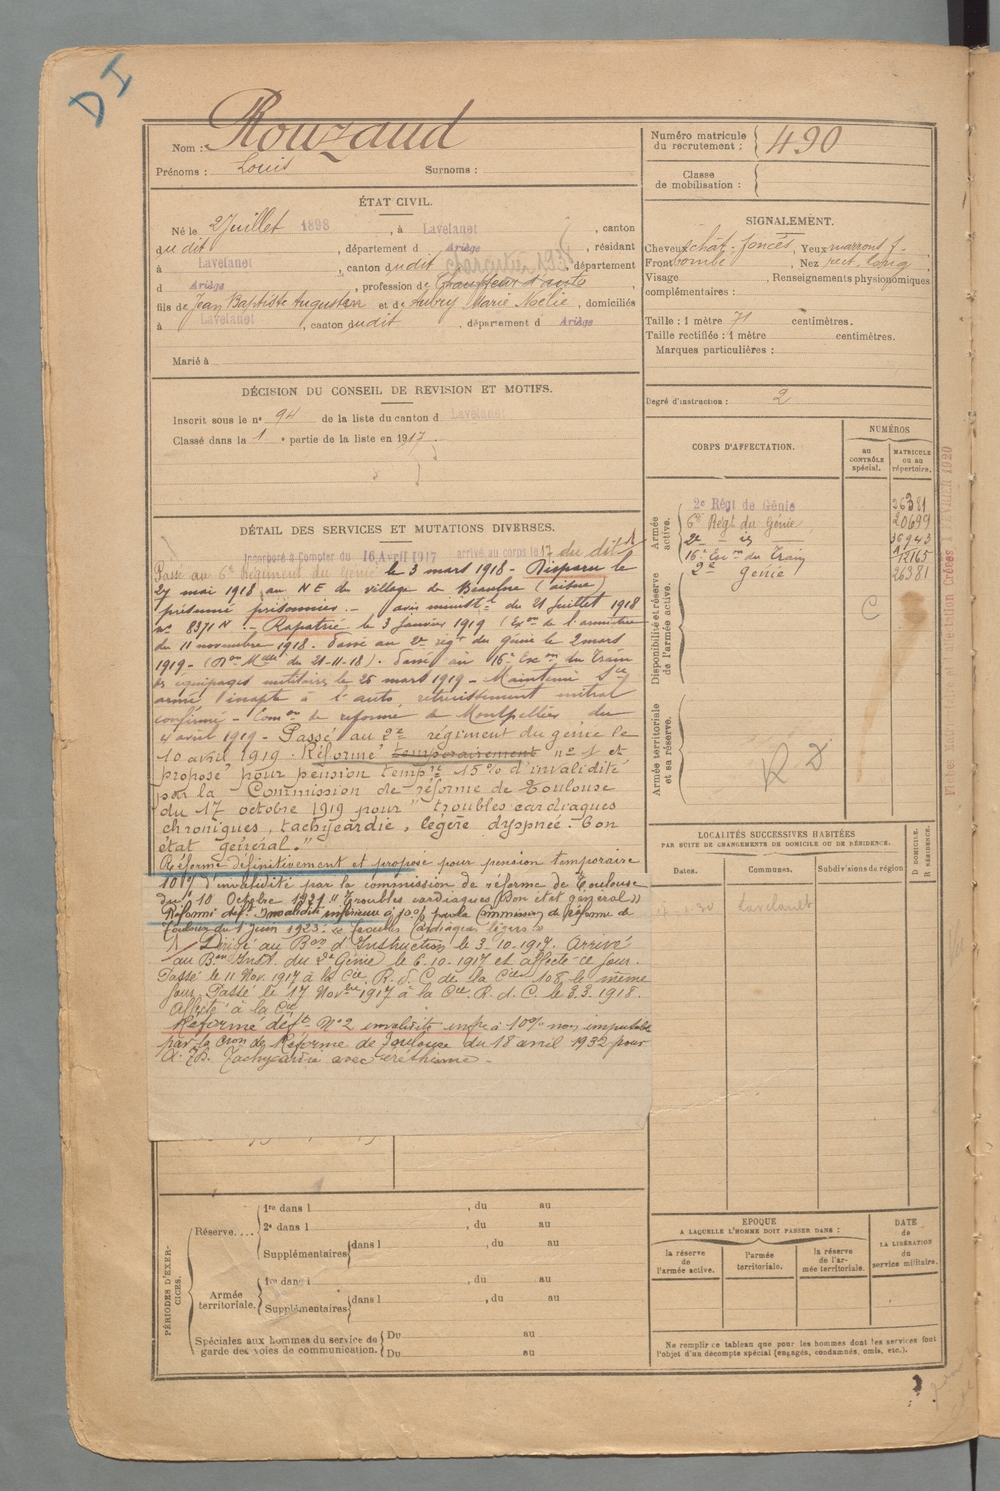 DI
Nom : Rouzaud
Prénoms : Louis Surnoms :
Numéro matricule du recrutement : 490
Classe de mobilisation :
ÉTAT CIVIL.
Né le 2 Juillet 1898, à Lavelanet, canton
dudit, département d Ariège, résidant
à Lavelanet, canton dudit, département
d Ariège, profession de Chauffeur d'auto
fils de Jean Baptiste Augustin et de Aubry Marie Noélie, domiciliés
à Lavelanet, canton dudit, département d Ariège
Marié à
SIGNALEMENT.
Cheveux chât. foncés, Yeux marrons f.
Front bombé, Nez rect. long,
Visage , Renseignements physionomiques
complémentaires :
Taille : 1 mètre 71 centimètres.
Taille rectifiée : 1 mètre centimètres.
Marques particulières :
Degré d'instruction : 2
DÉCISION DU CONSEIL DE REVISION ET MOTIFS.
Inscrit sous le n° 94 de la liste du canton d Lavelanet
Classé dans la 1e partie de la liste en 1917.
CORPS D'AFFECTATION.
NUMÉROS
au CONTRÔLE spécial.
MATRICULE ou au répertoire.
Armée active.
2e Régt de Génie 26381
6e Régt du Génie 20699
2e — is — 36943
16e Esc on du Train 12165
2e génie 26381
Disponibilité et réserve de l'armée active.
C
Armée territoriale et sa réserve.
R D
DÉTAIL DES SERVICES ET MUTATIONS DIVERSES.
Incorporé à Compter du 16 Avril 1917 arrivé au corps le 17 du dit
Passé au 6e Régiment du Génie le 3 mars 1918 - Disparu le
27 mai 1918 au NE du village de Beaulne (aisne)
présumé prisonnier. - avis ministel du 21 Juillet 1918
n° 8371 N - Rapatrié le 3 Janvier 1919 (Exon de l'armistice
du 11 novembre 1918. Passé au 2e regt du génie le 2 mars
1919 - (Don Melle du 21-11-18). Passé au 16e Escon du Train
des équipages militaires le 26 mars 1919 - Maintenu Sce
armé inapte à l'auto rétrécissement mitral
confirmé - Comon de réforme de Montpellier du
4 avril 1919 - Passé au 2e régiment du génie le
10 avril 1919. Réformé temporairement n° 1 et
proposé pour pension tempre 15% d'invalidité
par la Commission de réforme de Toulouse
du 17 octobre 1919 pour "troubles cardiaques
chroniques, tachycardie, légère dyspnée. Bon
état général."
Réformé définitivement et proposé pour pension temporaire
10% d'invalidité par la commission de réforme de Toulouse
du 10 Octobre 1921 "Troubles cardiaques (Bon état général)"
Réformé déft. Invalidité inférieure à 10% par la Commission de Réforme de
Toulouse du 1 juin 1923. "Troubles Cardiaques légers"
Dirigé au Bon d'Instruction le 3.10.1917. Arrivé
au Bon Inst. du 2e Génie le 6.10.1917 et affecté ce jour.
Passé le 11 Nov. 1917 à la Cie R. d. C de la Cie 108 le même
jour. Passé le 17 Novbre 1917 à la Cie R. d. C. le 3.3.1918.
Affecté à la Cie
Réformé déft N°2 invalidité infre à 10% non imputable
par la Cion de Réforme de Toulouse du 18 avril 1932 pour
Tachycardie avec éréthisme -
LOCALITÉS SUCCESSIVES HABITÉES
PAR SUITE DE CHANGEMENTS DE DOMICILE OU DE RÉSIDENCE.
Dates. Communes. Subdivisions de région
D DOMICILE. R RÉSIDENCE.
Lavelanet
PÉRIODES D'EXERCICES.
Réserve....
1re dans l , du au
2e dans l , du au
Supplémentaires dans l , du au
Armée territoriale.
1re dans l , du au
Supplémentaires dans l , du au
Spéciales aux hommes du service de garde des voies de communication.
Du au
Du au
EPOQUE
A LAQUELLE L'HOMME DOIT PASSER DANS :
la réserve de l'armée active.
l'armée territoriale.
la réserve de l'armée territoriale.
DATE de LA LIBÉRATION du service militaire.
Ne remplir ce tableau que pour les hommes dont les services font
l'objet d'un décompte spécial (engagés, condamnés, omis, etc.).